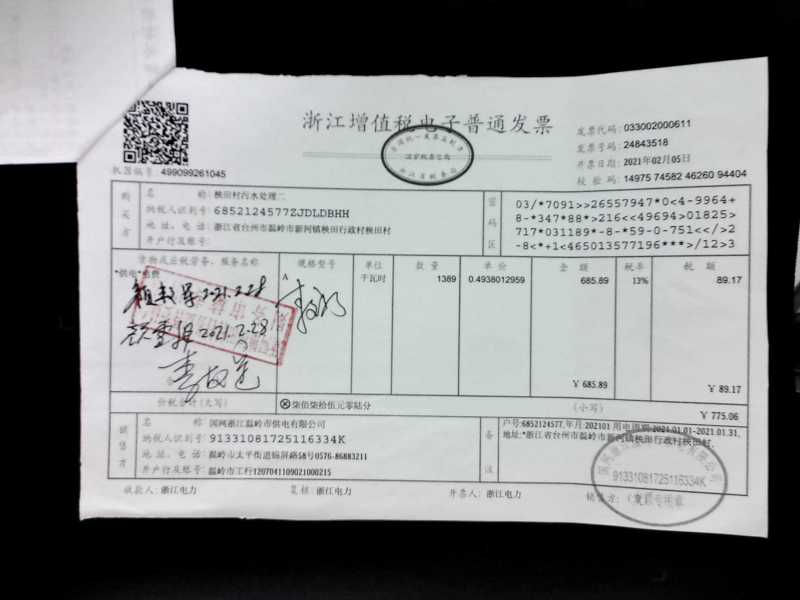 浙江增值税电子普通发票
发票代码: 033002000611
发票号码: 24843518
开票日期: 2021年02月05日
校 验 码: 14975 74582 46260 94404
机器编号: 499099261045
购买方
名 称: 秧田村污水处理二
纳税人识别号: 6852124577ZJDLDBHH
地 址、电 话: 浙江省台州市温岭市新河镇秧田行政村秧田村
开户行及账号:
密码区
03/*7091>>26557947*0<4-9964+
8-*347*88*>216<<49694>01825>
717*031189*-8-*59-0-751<</>2
-8<*+1<465013577196***>/12>3
货物或应税劳务、服务名称 规格型号 单位 数 量 单 价 金 额 税率 税 额
*供电*电费 A 千瓦时 1389 0.4938012959 685.89 13% 89.17
2021.2.28
2021.2.28
￥685.89 ￥89.17
价税合计(大写) ⊗柒佰柒拾伍元零陆分 (小写) ￥775.06
销售方
名 称: 国网浙江温岭市供电有限公司
纳税人识别号: 91331081725116334K
地 址、电 话: 温岭市太平街道锦屏路58号0576-86883211
开户行及账号: 温岭市工行1207041109021000215
备注
户号:6852124577,年月:202101 用电周期:2021.01.01-2021.01.31,
地址:*浙江省台州市温岭市新河镇秧田行政村秧田村,
91331081725116334K
发票专用章
收款人: 浙江电力 复核: 浙江电力 开票人: 浙江电力 销售方: (章)